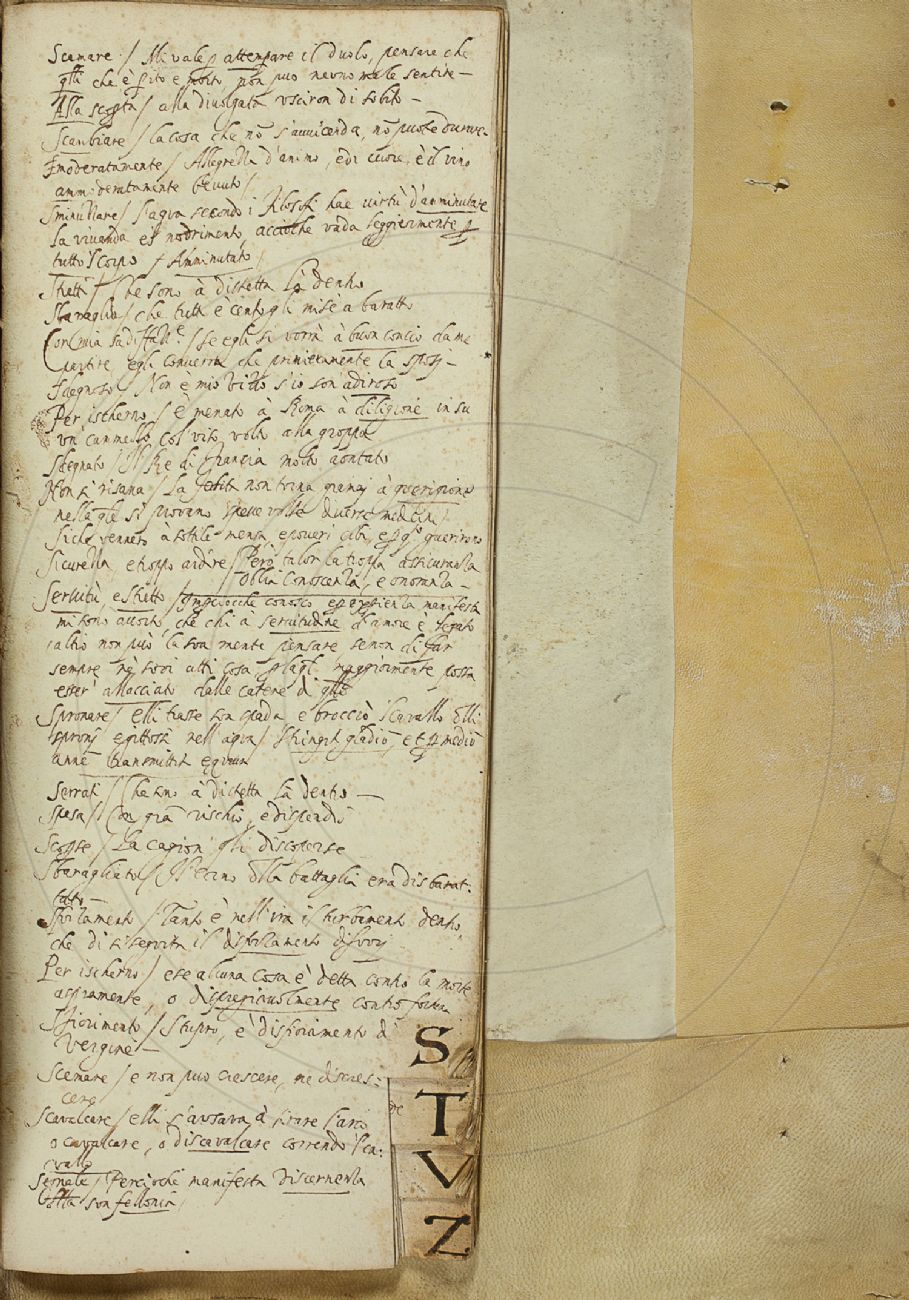 Scemare / Mi vale attempare il duolo, pensare che
che è gito e morto non puo nevno male sentire –
Alla scop̃ta / alla diuolgata vsciron di sobito –
Scambiare / la cosa che nõ s'auuicenda, nõ puote durare
Imoderatamente / Allegrezza d'animo, e di cuore, è il vino
ammoderatamente beuuto /
Sminuzzare / l'aqua secondo i filosofi hae uirtù d'amminutare
la viuanda e'l nodrimento, accioche vada leggieremente p̱
tutto 'l corpo / Amminutato /
Stretti / Che sono à distretta là dentro
Sbaraglia / che tutti è cento gli mise a baratto
Con mia / se egli si vorrà à buon concio da me
partire, egli conuerrà che primieramente la
Sdegnoso / Non è mio vitio s'io son adiroso
Per ischerno / è menato à Roma à diligione in su
vn cammello col viso volto alla groppa
Sdegnato / Il Re di francia molto aontato
Non si risana / La non torna giamaj à guerigione
nella q̃le si prouano spesse volte diuerse medicine
Siche vennero à sottile mensa, e poueri cibi, e guerirono
Sicurezza, e troppo ardire / Però talor la troppa assicuranza
Oblia conoscenza, e onoranza –
Seruitù, e stretto / Imp̱ciocche conosco esperienza manifesta
mi sono accorto, che chi à seruitudine d'amore è legato
altro non può la sua mente pensare senon di far
sempre cosa maggiormente possa
esser allacciato dalle catene di
Spronare / elli trasse son spada e broccio 'l cauallo delli
sproni e gittossi nell'aqua / Stringit gladiũ, et p̱ mediũ
annẽ transmittit equum
Serrati / Che sono à distretta là dentro –
Spesa / Con gran rischio, e dispendio
Scop̱se / La cagion gli discoperse
Sbaragliato / della battaglia era disbarat:
tato –
Sfoilamento / Tanto è nell'ira il turbamento dentro
che di se seguita il disfoilamento disuorj
Per ischerno / e se alcuna cosa è detta contro la morte
aspramente, o dispregieuolmente contro fortuna
Sfiorimento / Stupro, è disfioramento di
vergine –
Scemare / e non può crescere, ne discres:
cere
Scavalcare / elli s'ausaua à tirare l'arco
o caualcare, o discavalcare correndo 'l ca:
uallo
Segnale / Percioche manifesta discernenza
della son fellonia /
S
T
V
Z